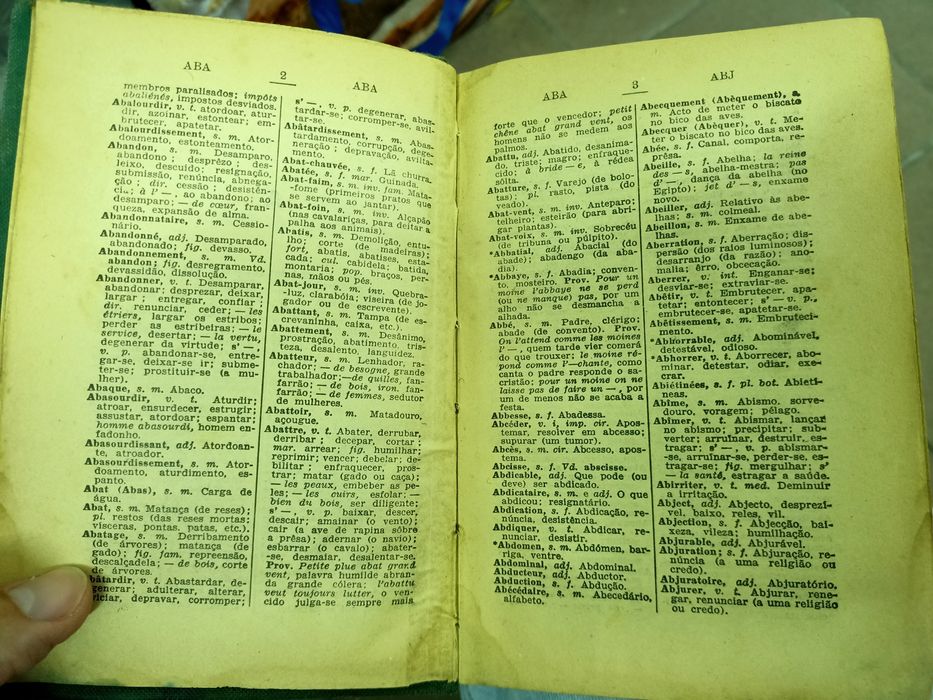 ABA
2
ABA
membros paralisados; impôts
abaliénés, impostos desviados.
Abalourdir, v. t. atordoar, atur-
dir, azoinar, estontear; em-
brutecer, apatetar.
Abalourdissement, s. m. Ator-
doamento, estonteamento.
Abandon, s. m. Desamparo,
abandono; desprêzo; des-
leixo, descuido; resignação,
submissão, renúncia, abnega-
ção; dir. cessão; desistên-
ci..; à l' —, ao abandono; ao
desamparo; — de cœur, fran-
queza, expansão de alma.
Abandonnataire, s. m. Cessio-
nário.
Abandonné, adj. Desamparado,
abandonado; fig. devasso.
Abandonnement, s. m. Vd.
abandon; fig. desregramento,
devassidão, dissolução.
Abandonner, v. t. Desamparar,
abandonar; desprezar, deixar,
largar; entregar, confiar;
dir. renunciar, ceder; — les
étriers, largar os estribos;
perder as estribeiras; — le
service, desertar; — la vertu,
degenerar da virtude; s' —,
v. p. abandonar-se, entre-
gar-se, deixar-se ir; subme-
ter-se; prostituir-se (a mu-
lher).
Abaque, s. m. Abaco.
Abasourdir, v. t. Aturdir;
atroar, ensurdecer, estrugir;
assustar, atordoar; espantar;
homme abasourdi, homem en-
fadonho.
Abasourdissant, adj. Atordoan-
te, atroador.
Abasourdissement, s. m. Ator-
doamento, aturdimento, es-
panto.
Abat (Abas), s. m. Carga de
água.
Abat, s. m. Matança (de reses);
pl. restos (das reses mortas:
visceras, pontas, patas, etc.).
Abatage, s. m. Derribamento
(de árvores); matança (de
gado); fig. fam. repreensão,
descalçadela; — de bois, corte
de árvores.
bâtardir, v. t. Abastardar, de-
generar; adulterar, alterar,
viciar, depravar, corromper;
s' —, v. p. degenerar, abas-
tardar-se; corromper-se, avil-
tar-se.
Abâtardissement, s. m. Abas-
tardamento, corrupção, dege-
neração; depravação, avilta-
mento.
Abat-chauvée, s. f. Lã churra.
Abatée, s. f. mar. Guinada.
Abat-faim, s. m. inv. fam. Mata-
-fome (primeiros pratos que
se servem ao jantar).
Abat-foin, s. m. inv. Alçapão
(nas cavalariças, para deitar a
palha aos animais).
Abatis, s. m. Demolição, entu-
lho; corte (de madeiras);
fort, abatis, abatises, esta-
cada; cul. cabidela; batida,
montaria; pop. braços, per-
nas, mãos ou pés.
Abat-jour, s. m. inv. Quebra-
-luz, clarabóia; viseira (de jo-
gador ou de escrevente).
Abattant, s. m. Tampa (de es-
crevaninha, caixa, etc.).
Abattement, s. m. Desânimo,
prostração, abatimento, tris-
teza, desalento, languidez.
Abatteur, s. m. Lenhador, ra-
chador; — de besogne, grande
trabalhador; —de quilles, fan-
farrão; — de bois, iron. fan-
farrão; — de femmes, sedutor
de mulheres.
Abattoir, s. m. Matadouro,
açougue.
Abattre, v. t. Abater, derrubar,
derribar; decepar, cortar;
mar. arrear; fig. humilhar;
reprimir; vencer; debelar; de-
bilitar; enfraquecer, pros-
trar; matar (gado ou caça);
— les peaux, embeber as pe-
les; — les cuirs, esfolar; —
bien du bois, ser diligente;
s' —, v. p. baixar, descer,
descair; amainar (o vento);
cair (a ave de rapina sôbre
a prêsa); adernar (o navio);
esbarrar (o cavalo); abater-
-se, desmaiar, desalentar-se.
Prov. Petite pluie abat grand
vent, palavra humilde abran-
da grande cólera; l'abattu
veut toujours lutter, o ven-
cido julga-se sempre mais
ABA
3
ABJ
forte que o vencedor; petit
chêne abat grand vent, os
homens não se medem aos
palmos.
Abattu, adj. Abatido, desanima-
do, triste; magro; enfraque-
cido; à bride — e, à rédea
sôlta.
Abatture, s. f. Varejo (de bolo-
tas); pl. rasto, pista (do
veado).
Abat-vent, s. m. inv. Anteparo;
telheiro; esteirão (para abri-
gar plantas).
Abat-voix, s. m. inv. Sobrecéu
(de tribuna ou púlpito).
*Abbatial, adj. Abacial (do
abade); abadengo (da aba-
dia).
*Abbaye, s. f. Abadia; conven-
to, mosteiro. Prov. Pour un
moine l'abbaye ne se perd
(ou ne manque) pas, por um
alho não se desmancha a
alhada.
Abbé, s. m. Padre, clérigo;
abade (de convento). Prov.
On l'attend comme les moines
l' —, quem tarde vier comerá
do que trouxer; le moine ré-
pond comme l'—chante, como
canta o padre responde o sa-
cristão; pour un moine on ne
laisse pas de faire un —, por
um de menos não se acaba a
festa.
Abbesse, s. f. Abadessa.
Abcéder, v. i, imp. cir. Apos-
temar, resolver em abcesso;
supurar (um tumor).
Abcès, s. m. cir. Abcesso, apos-
tema.
Abcisse, s. f. Vd. abscisse.
Abdicable, adj. Que pode (ou
deve) ser abdicado.
Abdicataire, s. m. e adj. O que
abdicou; resignatário.
Abdication, s. f. Abdicação, re-
núncia, desistência.
Abdiquer, v. t. Abdicar, re-
nunciar, desistir.
*Abdomen, s. m. Abdómen, bar-
riga, ventre.
Abdominal, adj. Abdominal.
Abducteur, adj. Abductor.
Abduction, s. f. Abdução.
Abécédaire, s. m. Abecedário,
alfabeto.
Abecquement (Abèquement), s.
m. Acto de meter o biscato
no bico das aves.
Abecquer (Abèquer), v. t. Me-
ter o biscato no bico das aves.
Abée, s. f. Canal, comporta, re-
prêsa.
Abeille, s. f. Abelha; la reine
des — s, abelha-mestra; pas
d' —, dança da abelha (no
Egipto); jet d' — s, enxame
novo.
Abeiller, adj. Relativo às abe-
lhas; s. m. colmeal.
Abeillon, s. m. Enxame de abe-
lhas.
Aberration, s. f. Aberração; dis-
persão (dos raios luminosos);
desarranjo (da razão); ano-
malia; êrro, obcecação.
Aberrer, v. int. Enganar-se;
desviar-se; extraviar-se.
Abêtir, v. t. Embrutecer, apa-
tetar; entontecer; s' — v. p.,
embrutecer-se, apatetar-se.
Abêtissement, s. m. Embruteci-
mento.
*Abhorrable, adj. Abominável,
detestável, odioso.
*Abhorrer, v. t. Aborrecer, abo-
minar, detestar, odiar, exe-
crar.
Abiétinées, s. f. pl. bot. Abieti-
neas.
Abîme, s. m. Abismo, sorve-
douro, voragem; pélago.
Abîmer, v. t. Abismar, lançar
no abismo; precipitar; sub-
verter; arruïnar, destruir, es-
tragar; s' —, v. p. abismar-
-se, arruïnar-se, perder-se, es-
tragar-se; fig. mergulhar; s'
— la santé, estragar a saúde.
Abirriter, v. t. med. Deminuir
a irritação.
Abject, adj. Abjecto, desprezí-
vel, baixo, reles, vil.
Abjection, s. f. Abjecção, bai-
xeza, vileza; humilhação.
Abjurable, adj. Abjurável.
Abjuration; s. f. Abjuração, re-
núncia (a uma religião ou
credo).
Abjuratoire, adj. Abjuratório.
Abjurer, v. t. Abjurar, rene-
gar, renunciar (a uma religião
ou credo).